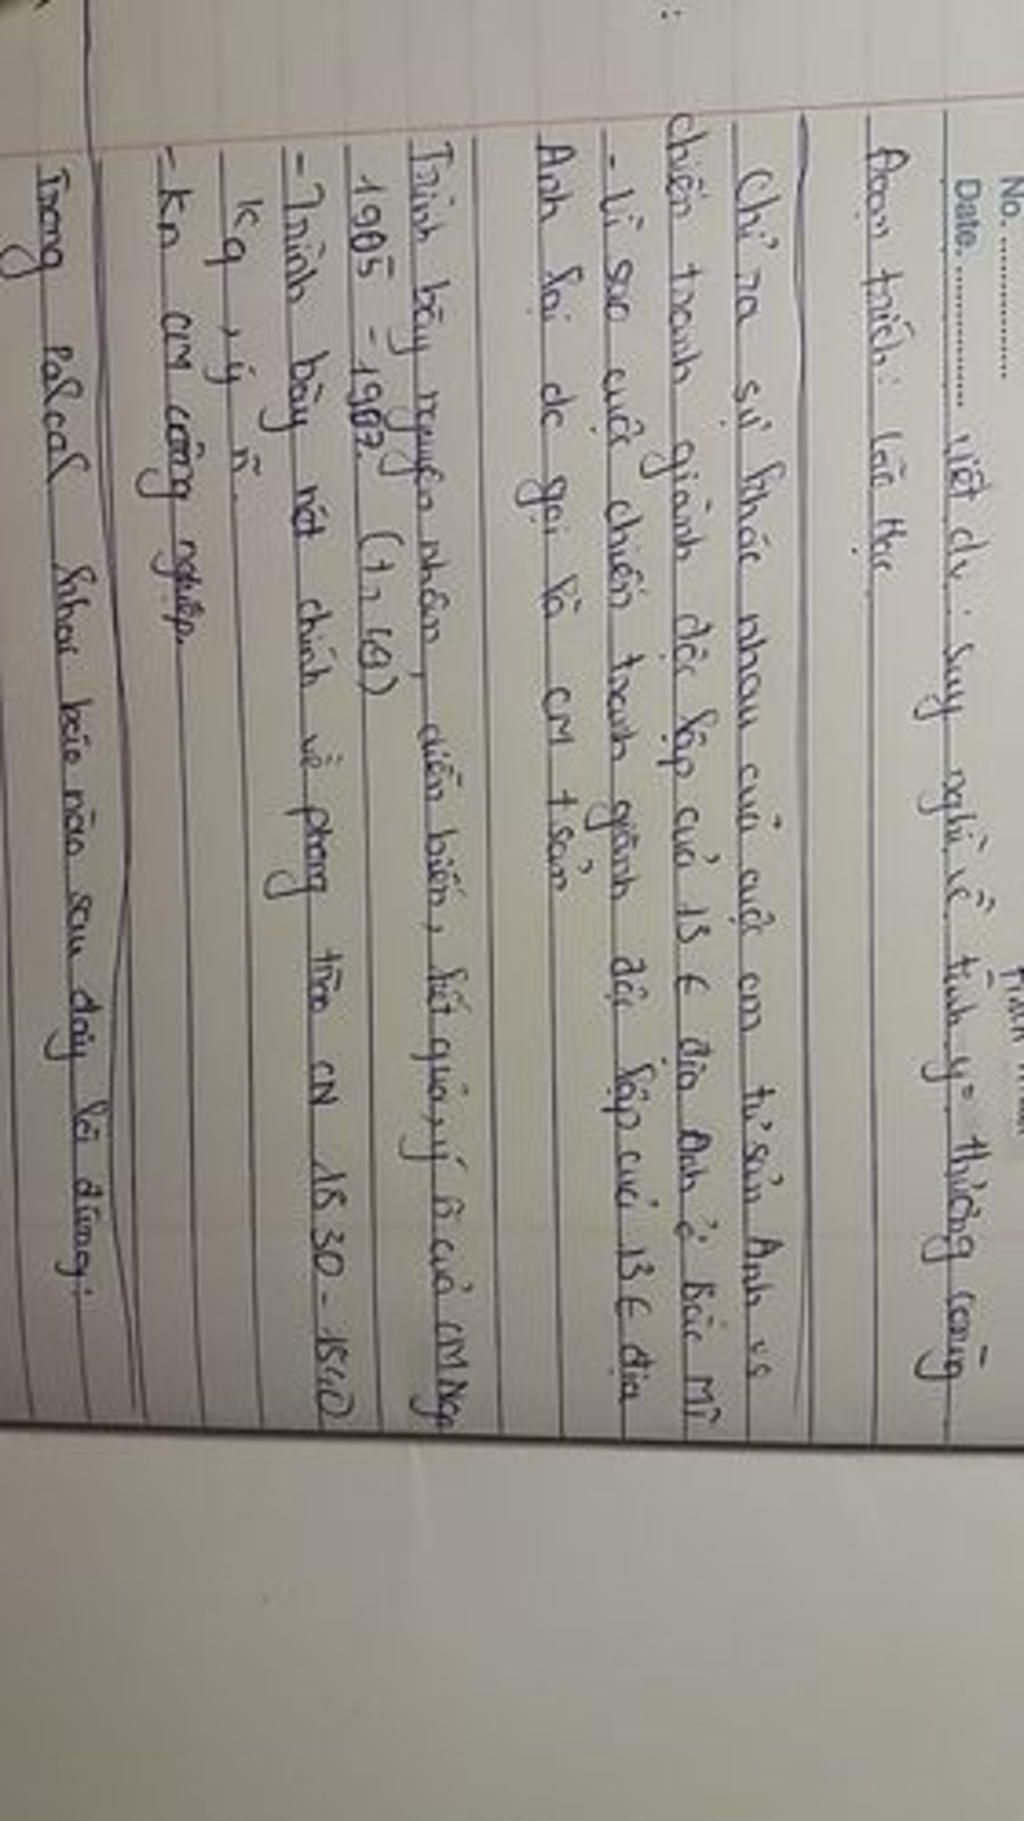 No. ................
Date. ................
Viết đv: Suy nghĩ về tình yº thương cũng
Đoạn trích: Lão Hạc
Chỉ ra sự khác nhau của cuộc cm tư sản Anh vs
chiến tranh giành độc lập của 13 € địa Anh ở Bắc Mĩ
- Lí sao cuộc chiến tranh giành độc lập của 13 € địa
Anh lại dc gọi là CM t sản
Trình bày nguyên nhân, diễn biến, kết quả, ý n̄ của CM Nga
1905 - 1907. (tr 49)
- Trình bày nét chính về phong trào CN 1830 - 1840
kq, ý n̄.
- Kn CM công nghiệp.
Trong Pascal khai báo nào sau đây là đúng: